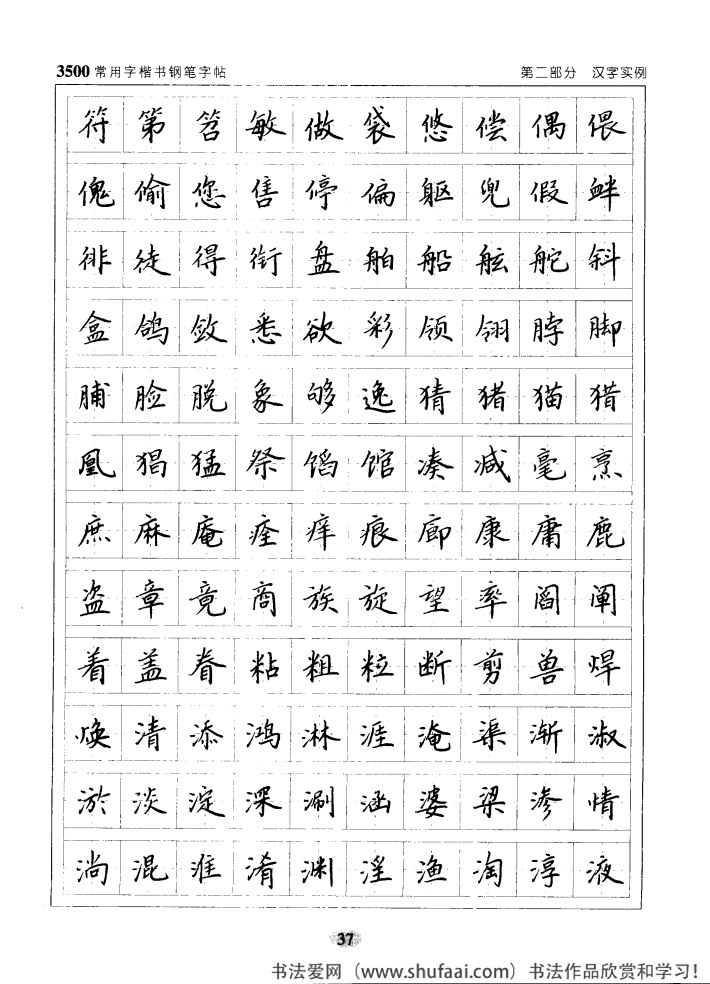 3500常用字楷书钢笔字帖 第二部分 汉字实例
符 第 笤 敏 做 袋 悠 偿 偶 偎
傀 偷 您 售 停 偏 躯 兜 假 衅
徘 徙 得 衔 盘 舶 船 舷 舵 斜
盒 鸽 敛 悉 欲 彩 领 翎 脖 脚
脯 脸 脱 象 够 逸 猜 猪 猫 猎
凰 猖 猛 祭 馅 馆 凑 减 毫 烹
庶 麻 庵 痊 痒 痕 廊 康 庸 鹿
盗 章 竟 商 族 旋 望 率 阎 阐
着 盖 眷 粘 粗 粒 断 剪 兽 焊
焕 清 添 鸿 淋 涯 淹 渠 渐 淑
淤 淡 淀 深 涮 涵 婆 梁 渗 情
淌 混 淮 淆 渊 淫 渔 淘 淳 液
37
书法爱网（www.shufaai.com）书法作品欣赏和学习！